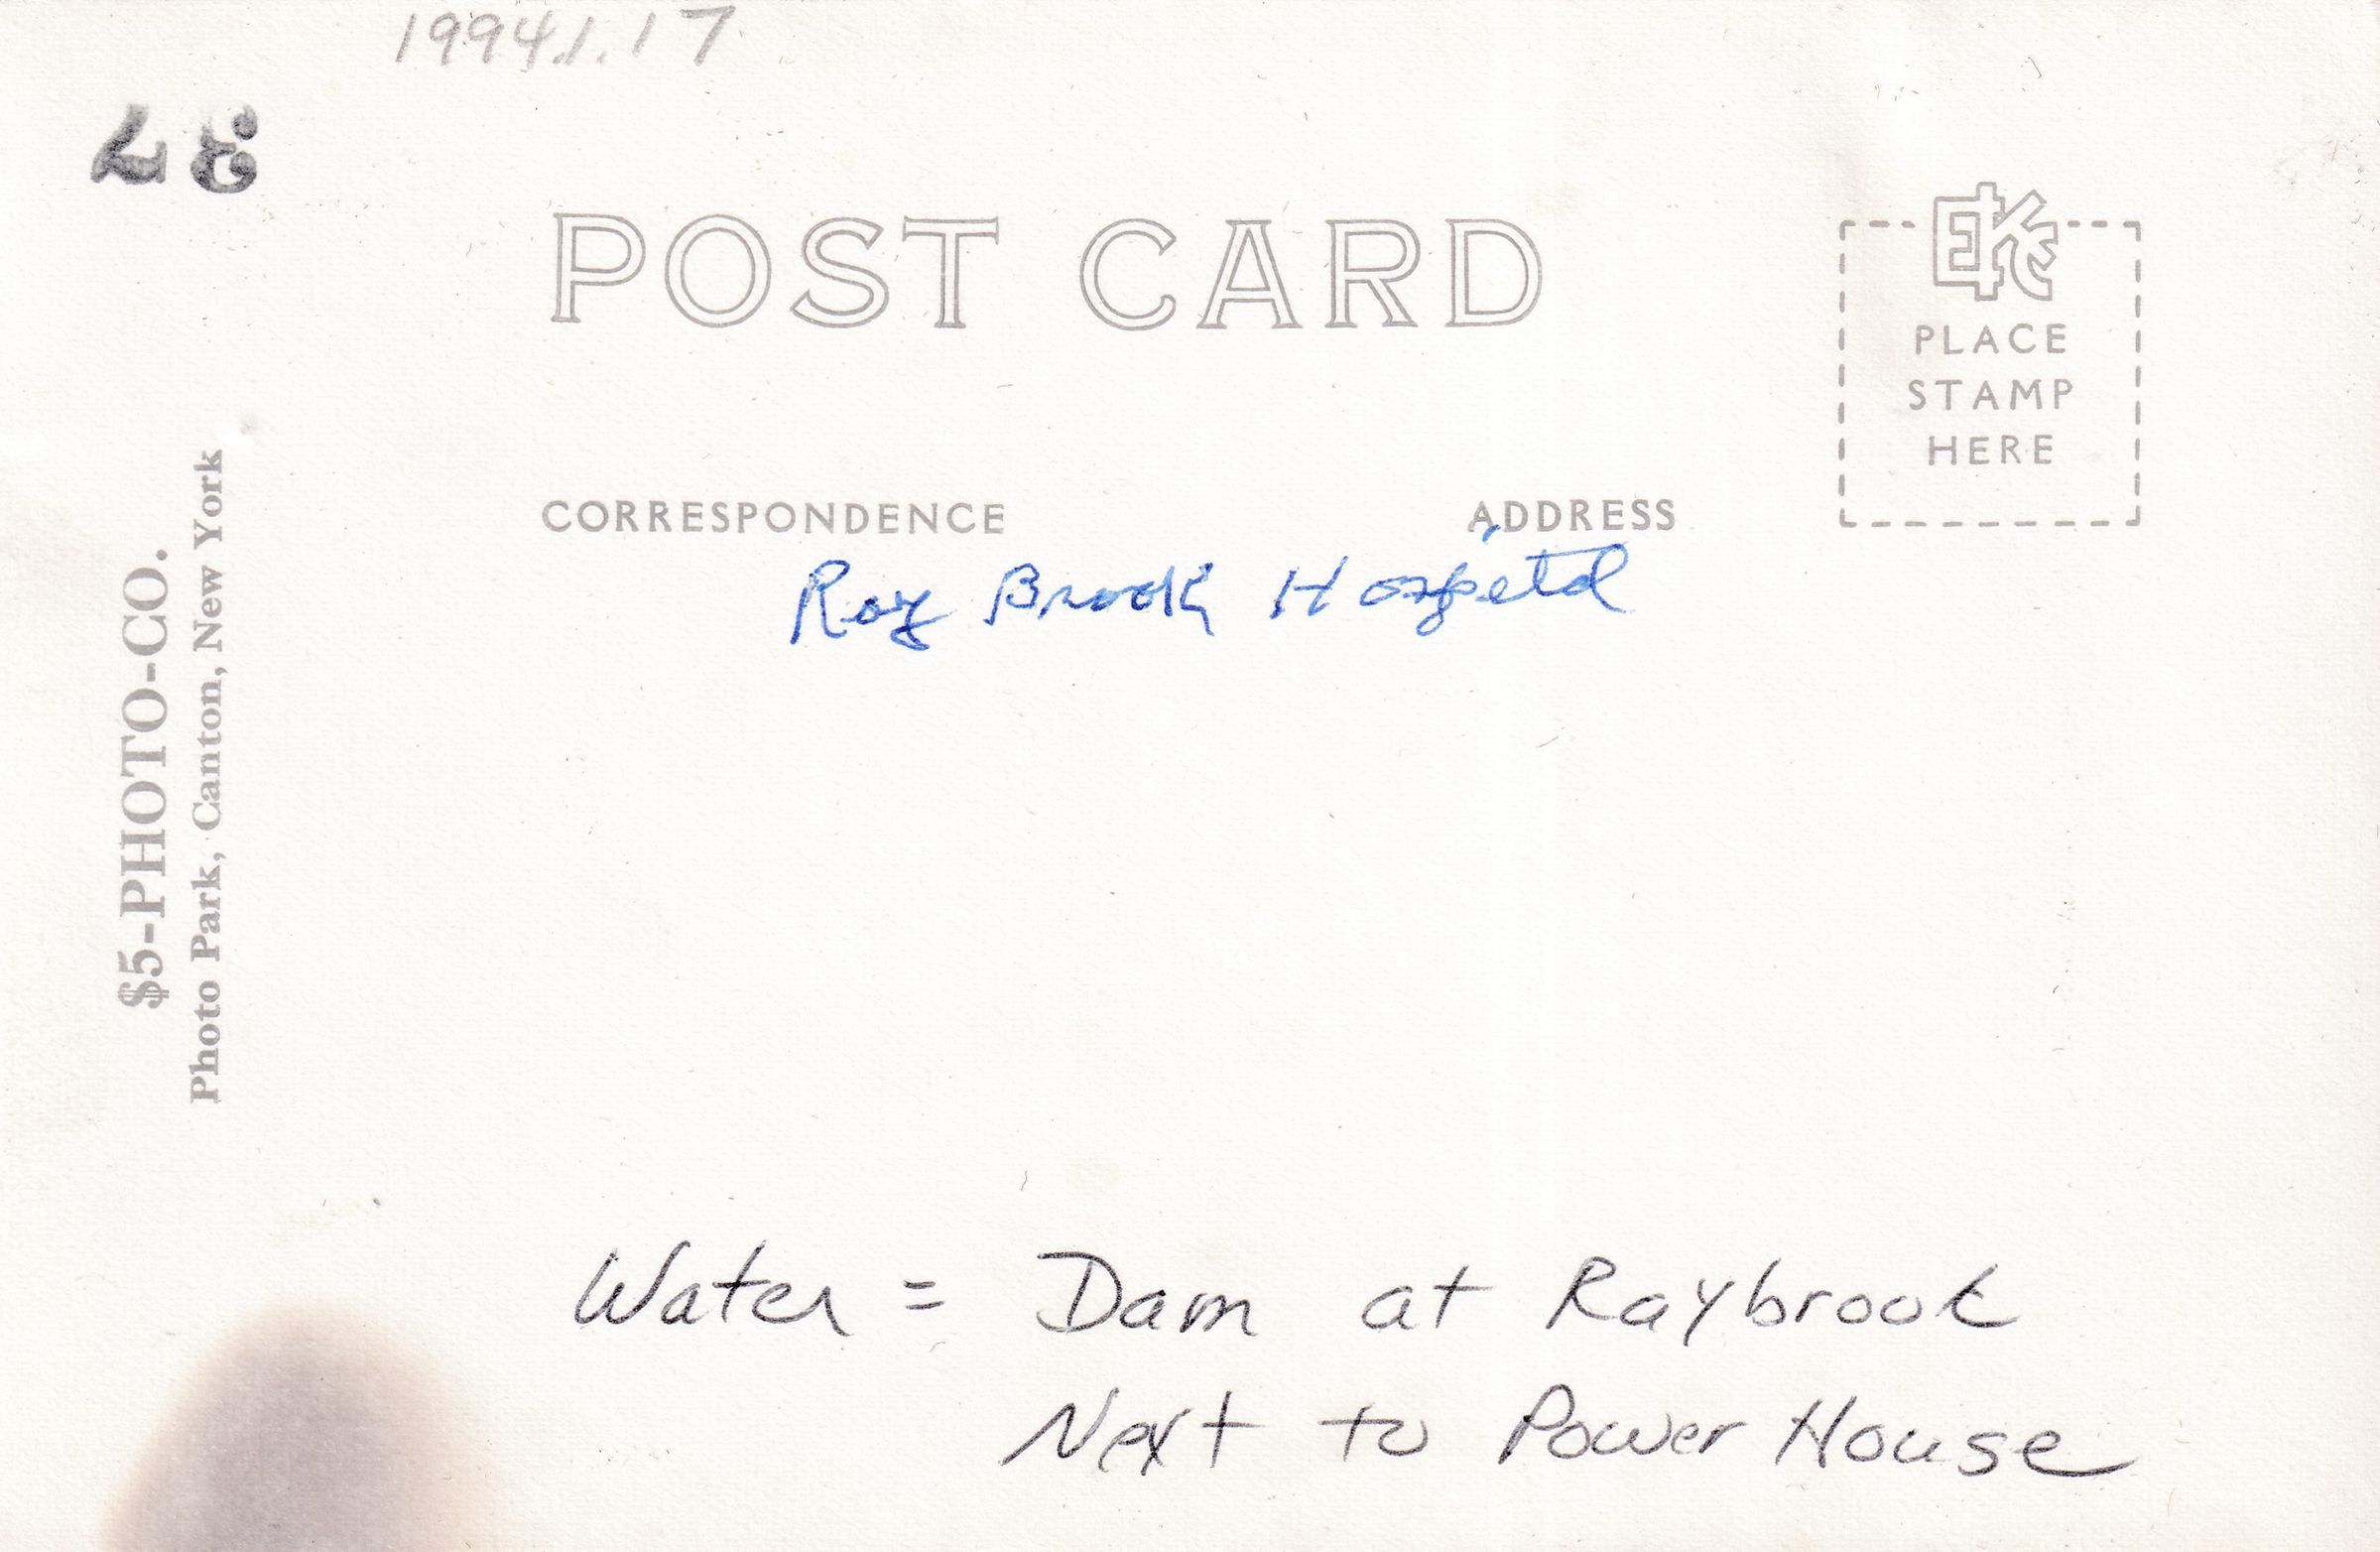 1994.1.17
37
POST CARD
EKC
PLACE
STAMP
HERE
CORRESPONDENCE
ADDRESS
Ray Brook Hospital
$5-PHOTO-CO.
Photo Park, Canton, New York
Water = Dam at Raybrook
Next to Power House